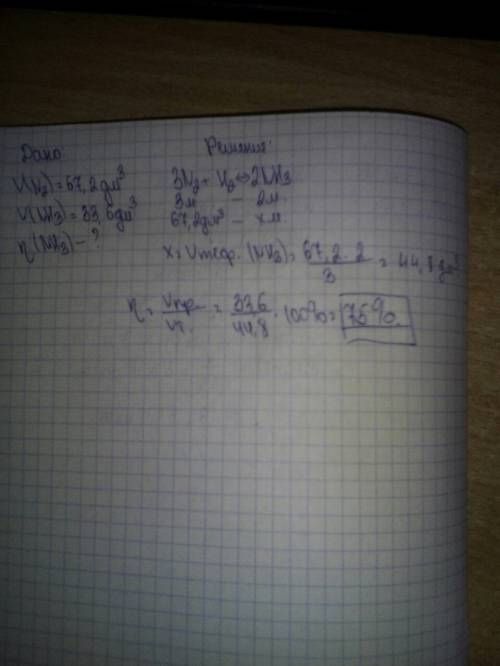 Дано:
V(H₂)=67,2дм³
V(NH₃)=33,6дм³
η(NH₃)-?
Решение:
3H₂+N₂⇔2NH₃
3м - 2м
67,2дм³ - xм
x=Vтеор.(NH₃)= 67,2·2/3 = 44,8дм³
η= Vпр./Vт. = 33,6/44,8 ·100%= 75%.